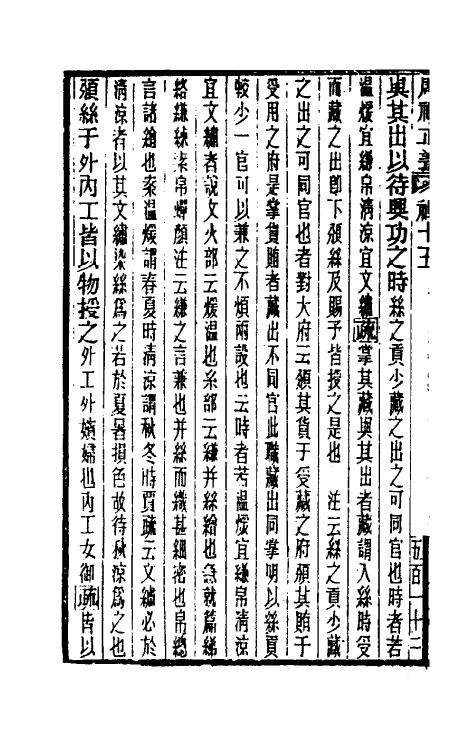 周禮正義 卷十五
掌其出以待興功之時絲之貢少藏之出之可同官也時者若
溫煖宜縑帛清涼宜文繡疏掌其藏與其出者藏謂入絲時受
而藏之出卽下頒絲及賜予皆授之是也 注云絲之貢少藏
之出之可同官也者對大府云頒其貨于受藏之府頒其賄于
受用之府是掌貨賄者藏出不同官此職藏出同掌明以絲貢
較少一官可以兼之不煩兩設也云時者若溫煖宜縑帛清涼
宜文繡者說文火部云煖溫也糸部云縑并絲繒也急就篇綈
絡縑練素帛蟬顏注云縑之言兼也并絲而織甚細密也帛總
言諸繒也案溫煖謂春夏時清涼謂秋冬時賈疏云文繡必於
清涼者以其文繡染絲爲之若於夏暑損色故待秋涼爲之也
頒絲于外內工皆以物授之外工外嬪婦也內工女御疏皆以